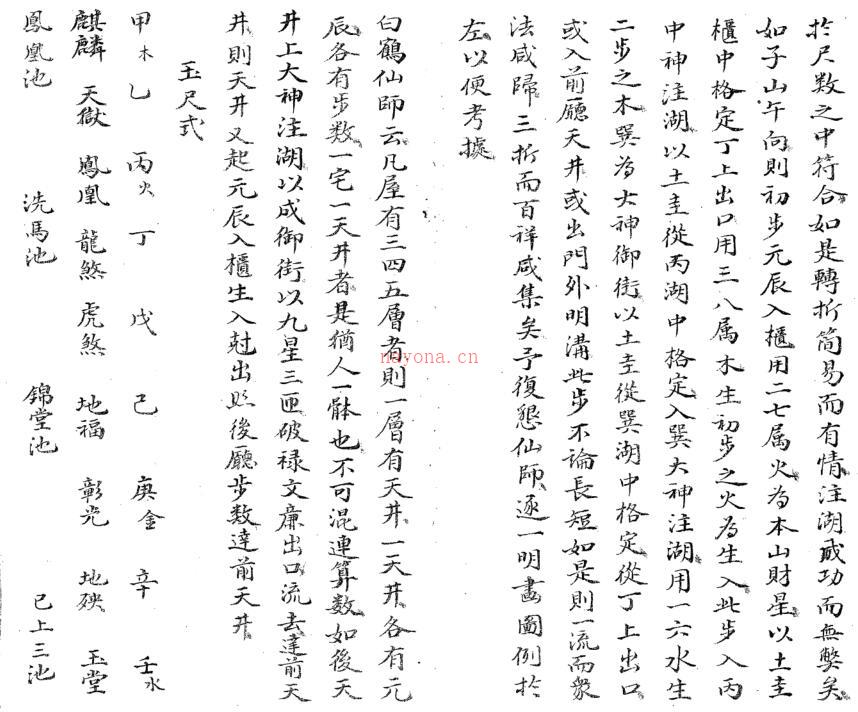 扵尺数之中符合如是轉折简易而有情注湖成功而無獘矣
如子山午向則初步元辰入櫃用二七属火為本山財星以土圭
櫃中格定丁上出口用三八属木生初步之火為生入此步入丙
中神注湖以土圭從丙湖中格定入巽大神注湖用一六水生
二步之木巽為大神御街以土圭從巽湖中格定從丁上出口
或入前廳天井或出門外明溝此步不論長短如是則一流而衆
法咸歸三折而百祥咸集矣予復懇仙師逐一明畫圖例於
左以便考據
白鶴仙師云凡屋有三四五層者則一層有天井一天井各有元
辰各有步数一宅一天井者是猶人一骵也不可混連算数如後天
井上大神注湖以成御街以九星三匝破禄文廉出口流去達前天
井則天井又起元辰入櫃生入尅出照後廳步数達前天井
玉尺式
甲木 乙 丙火 丁 戊 己 庚金 辛 壬水
麒麟 天獄 鳳凰 龍煞 虎煞 地福 彰光 地殃 玉堂
鳳凰池 洗馬池 錦堂池 已上三池
nayona.cn